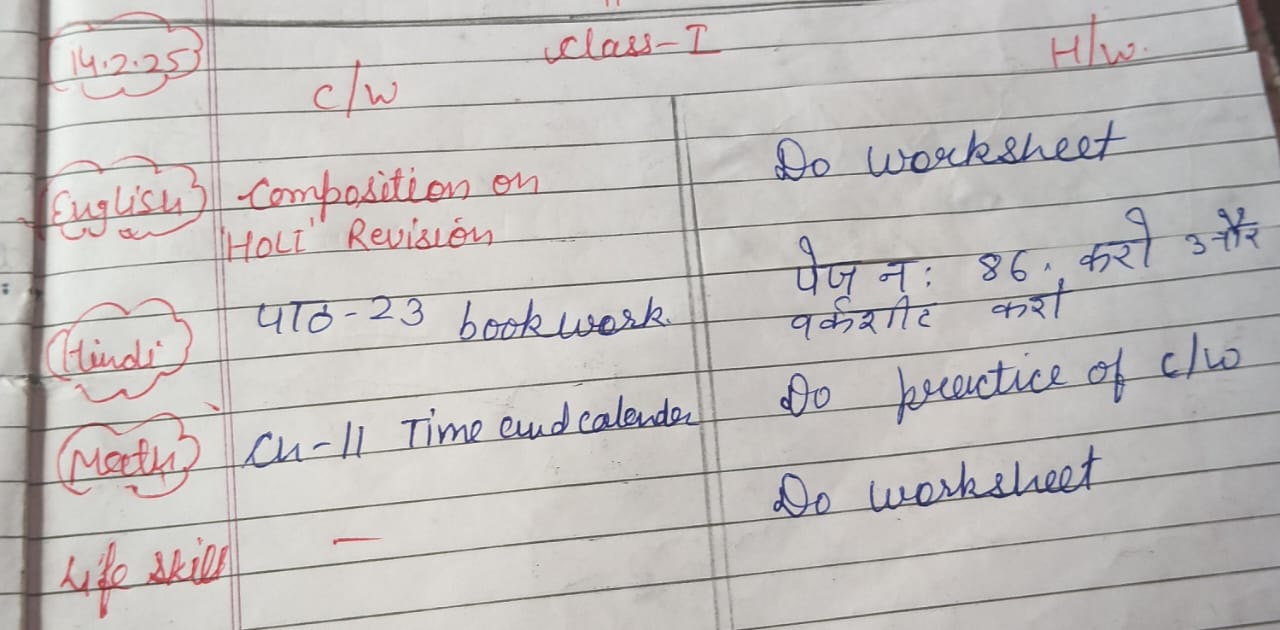 14.2.25 Class-I H/W.
C/W
Do worksheet
English Composition on
'HOLI' Revision
पेज न: 86. करो और
Hindi पाठ-23 bookwork. वर्कशीट करो
Do practice of c/w
Math Ch-11 Time and calender
Do worksheet
Life skill —